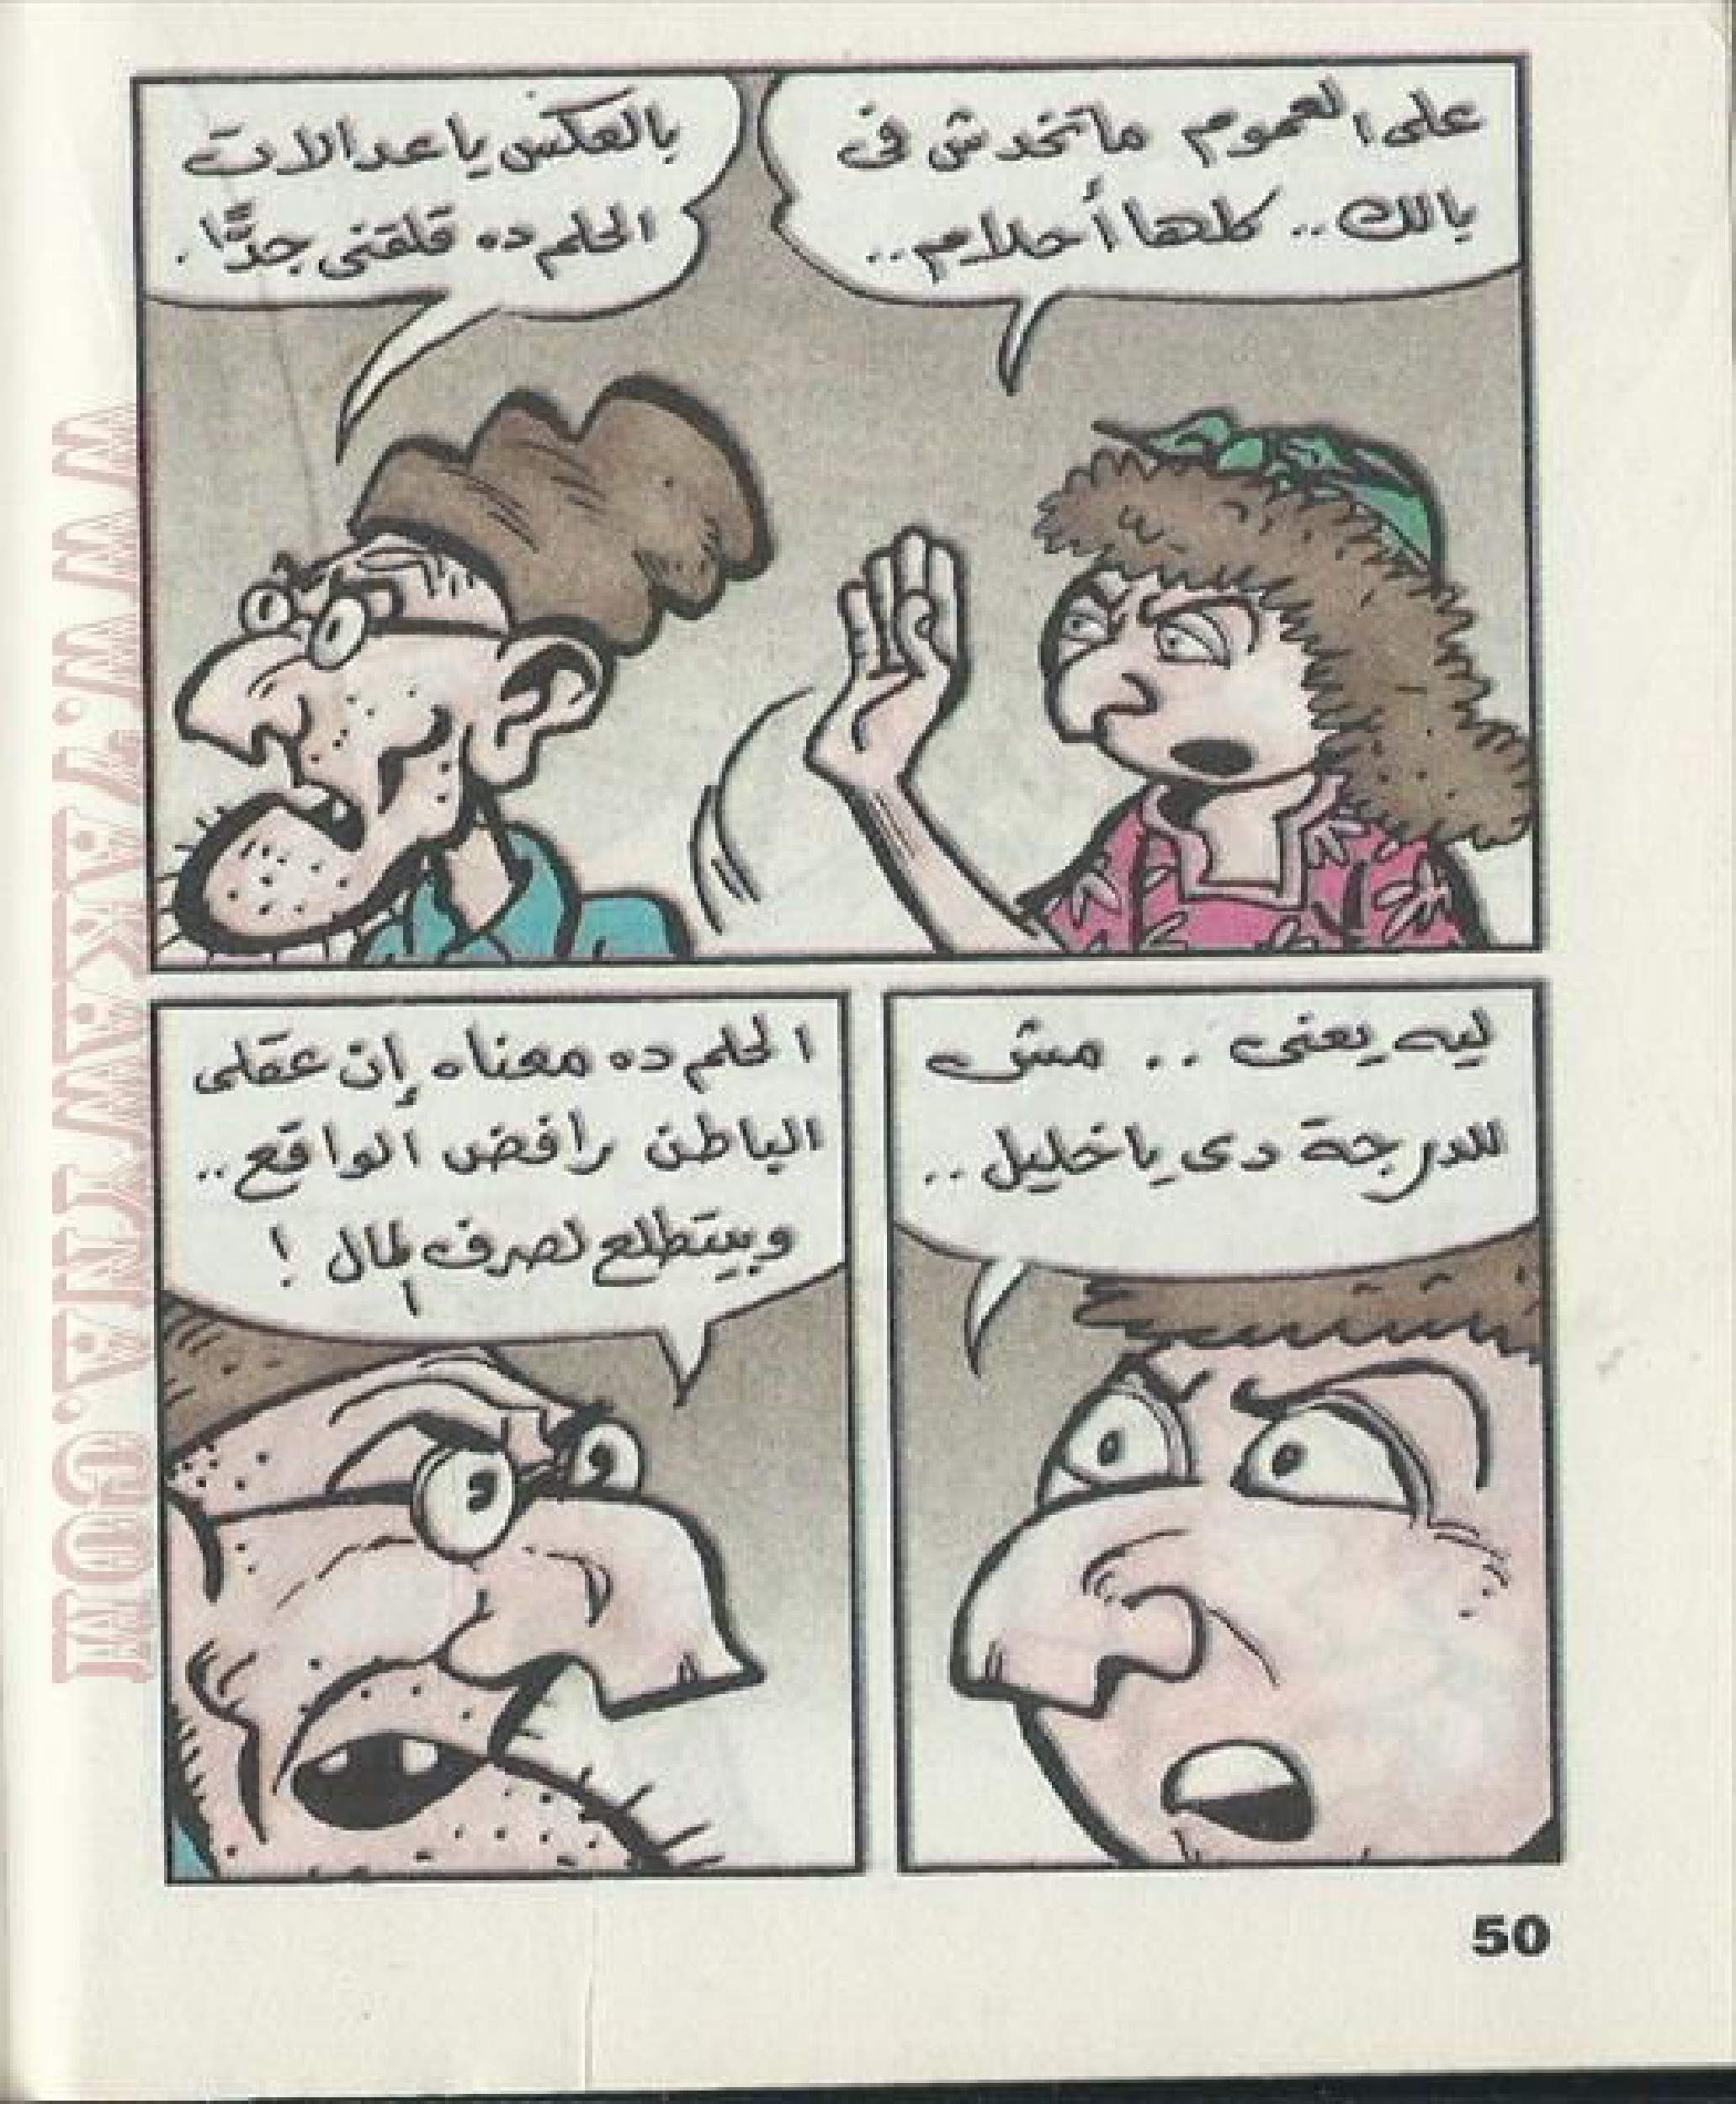 على العموم ماتخدش فى
بالك.. كلها أحلام..
بالعكس يا عدالات
الحلم ده قلقنى جدًّا.
ليه يعنى .. مش
للدرجة دى يا خليل..
الحلم ده معناه إن عقلى
الباطن رافض الواقع..
وبيتطلع لصرف المال !
50
WWW.TAKAWTNA.COM